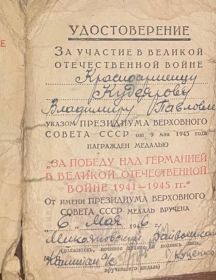 УДОСТОВЕРЕНИЕ
ЗА УЧАСТИЕ В ВЕЛИКОЙ
ОТЕЧЕСТВЕННОЙ ВОЙНЕ
Красноармейцу
Кудеярову
Владимиру Павлович
УКАЗОМ ПРЕЗИДИУМА ВЕРХОВНОГО
СОВЕТА СССР от 9 мая 1945 года
НАГРАЖДЕН МЕДАЛЬЮ
"ЗА ПОБЕДУ НАД ГЕРМАНИЕЙ
В ВЕЛИКОЙ ОТЕЧЕСТВЕННОЙ
ВОЙНЕ 1941—1945 гг."
ОТ ИМЕНИ ПРЕЗИДИУМА ВЕРХОВНОГО
СОВЕТА СССР МЕДАЛЬ ВРУЧЕНА
6 мая